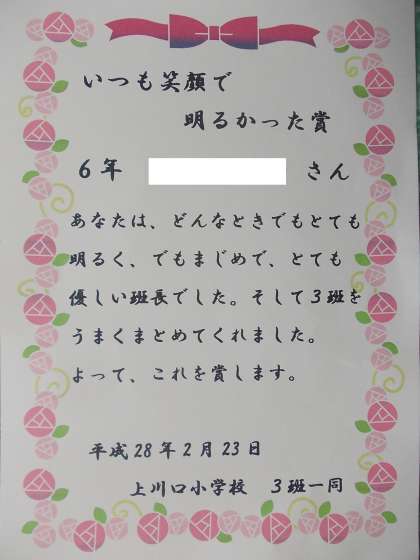 いつも笑顔で
明るかった賞
6年 さん
あなたは、どんなときでもとても
明るく、でもまじめで、とても
優しい班長でした。そして3班を
うまくまとめてくれました。
よって、これを賞します。
平成28年2月23日
上川口小学校 3班一同